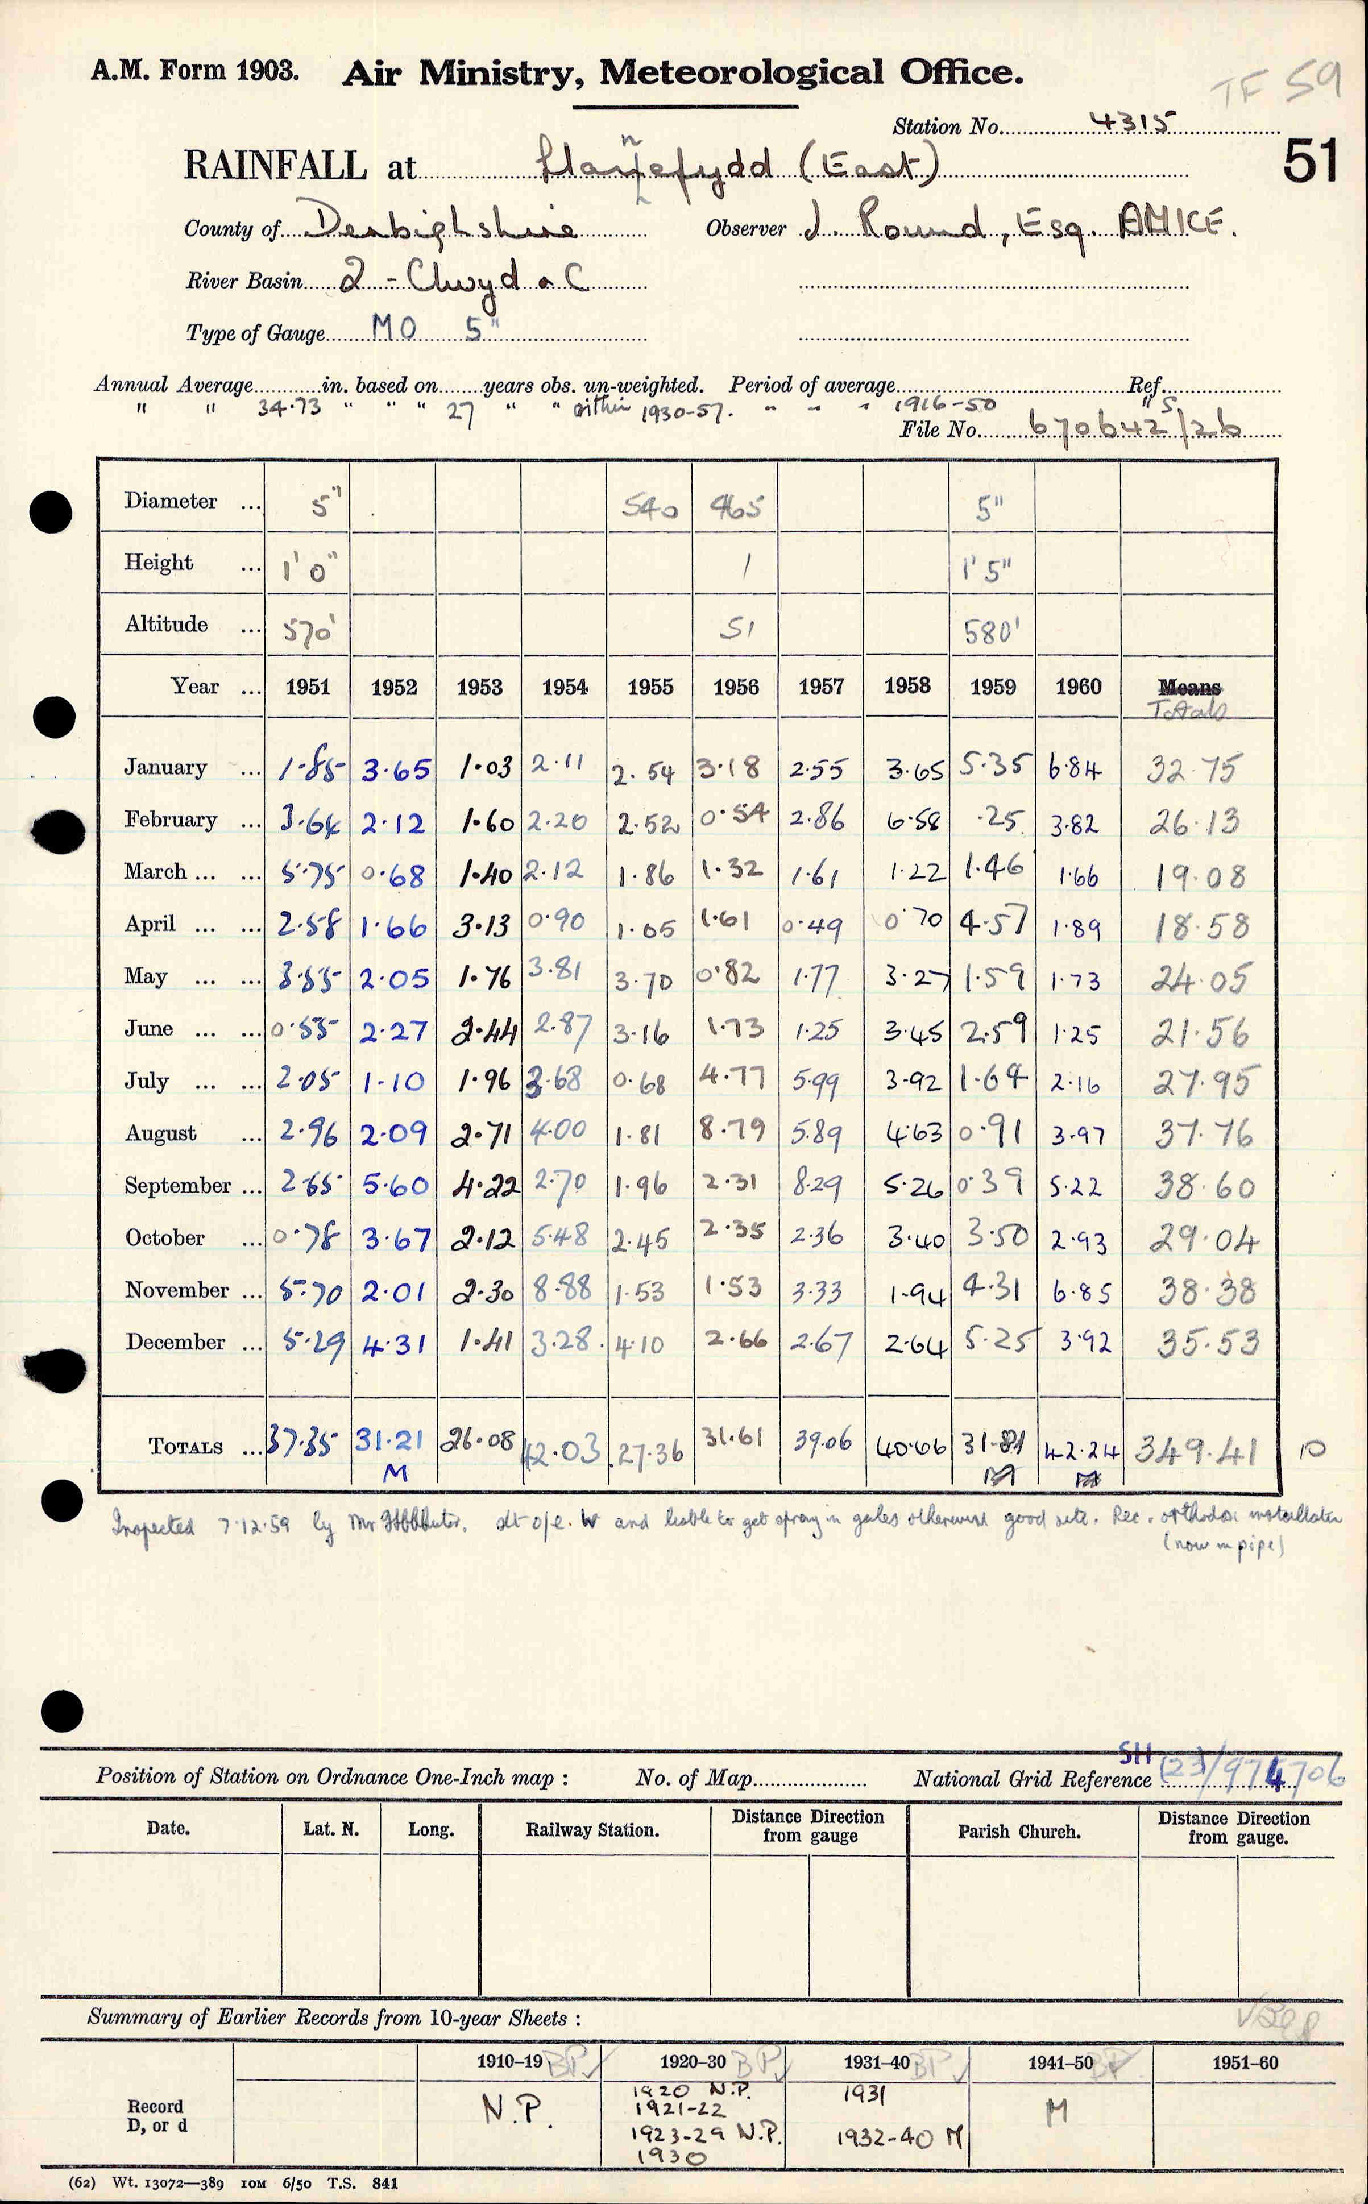 A.M. Form 1903. Air Ministry, Meteorological Office.
TF 59
Station No. 4315
51
RAINFALL at Llannefydd (East)
County of Denbighshire Observer J. Round, Esq. AMICE.
River Basin 2 - Clwyd & C
Type of Gauge MO 5"
Annual Average in. based on years obs. un-weighted. Period of average Ref.
" " 34.73 " " " 27 " " within 1930-57. " " " 1916-50 "S
File No. 670642/26
Diameter ... 5" 540 465 5"
Height ... 1'0" 1 1'5"
Altitude ... 570' 51 580'
Year ... 1951 1952 1953 1954 1955 1956 1957 1958 1959 1960 Means
Totals
January ... 1.85 3.65 1.03 2.11 2.54 3.18 2.55 3.65 5.35 6.84 32.75
February ... 3.64 2.12 1.60 2.20 2.52 0.54 2.86 6.58 .25 3.82 26.13
March ... ... 5.75 0.68 1.40 2.12 1.86 1.32 1.61 1.22 1.46 1.66 19.08
April ... ... 2.58 1.66 3.13 0.90 1.05 1.61 0.49 0.70 4.57 1.89 18.58
May ... ... 3.55 2.05 1.76 3.81 3.70 0.82 1.77 3.27 1.59 1.73 24.05
June ... ... 0.55 2.27 2.44 2.87 3.16 1.73 1.25 3.45 2.59 1.25 21.56
July ... ... 2.05 1.10 1.96 3.68 0.68 4.77 5.99 3.92 1.64 2.16 27.95
August ... 2.96 2.09 2.71 4.00 1.81 8.79 5.89 4.63 0.91 3.97 37.76
September ... 2.65 5.60 4.22 2.70 1.96 2.31 8.29 5.26 0.39 5.22 38.60
October ... 0.78 3.67 2.12 5.48 2.45 2.35 2.36 3.40 3.50 2.93 29.04
November ... 5.70 2.01 2.30 8.88 1.53 1.53 3.33 1.94 4.31 6.85 38.38
December ... 5.29 4.31 1.41 3.28 4.10 2.66 2.67 2.64 5.25 3.92 35.53
TOTALS ... 37.35 31.21 26.08 42.03 27.36 31.61 39.06 40.66 31.81 42.24 349.41 10
M M M
Inspected 7.12.59 by Mr and liable to get spray in gales otherwise good site. Rec. orthodox installation
(now in pipe)
Position of Station on Ordnance One-Inch map : No. of Map National Grid Reference SH (23)/974706
Date. Lat. N. Long. Railway Station. Distance Direction from gauge Parish Church. Distance Direction from gauge.
Summary of Earlier Records from 10-year Sheets :
1910-19 BP✓ 1920-30 BP✓ 1931-40 BP✓ 1941-50 BP 1951-60
Record D, or d
N.P.
1920 N.P.
1921-22
1923-29 N.P.
1930
1931
1932-40 M
M
(62) Wt. 13072—389 10M 6/50 T.S. 841